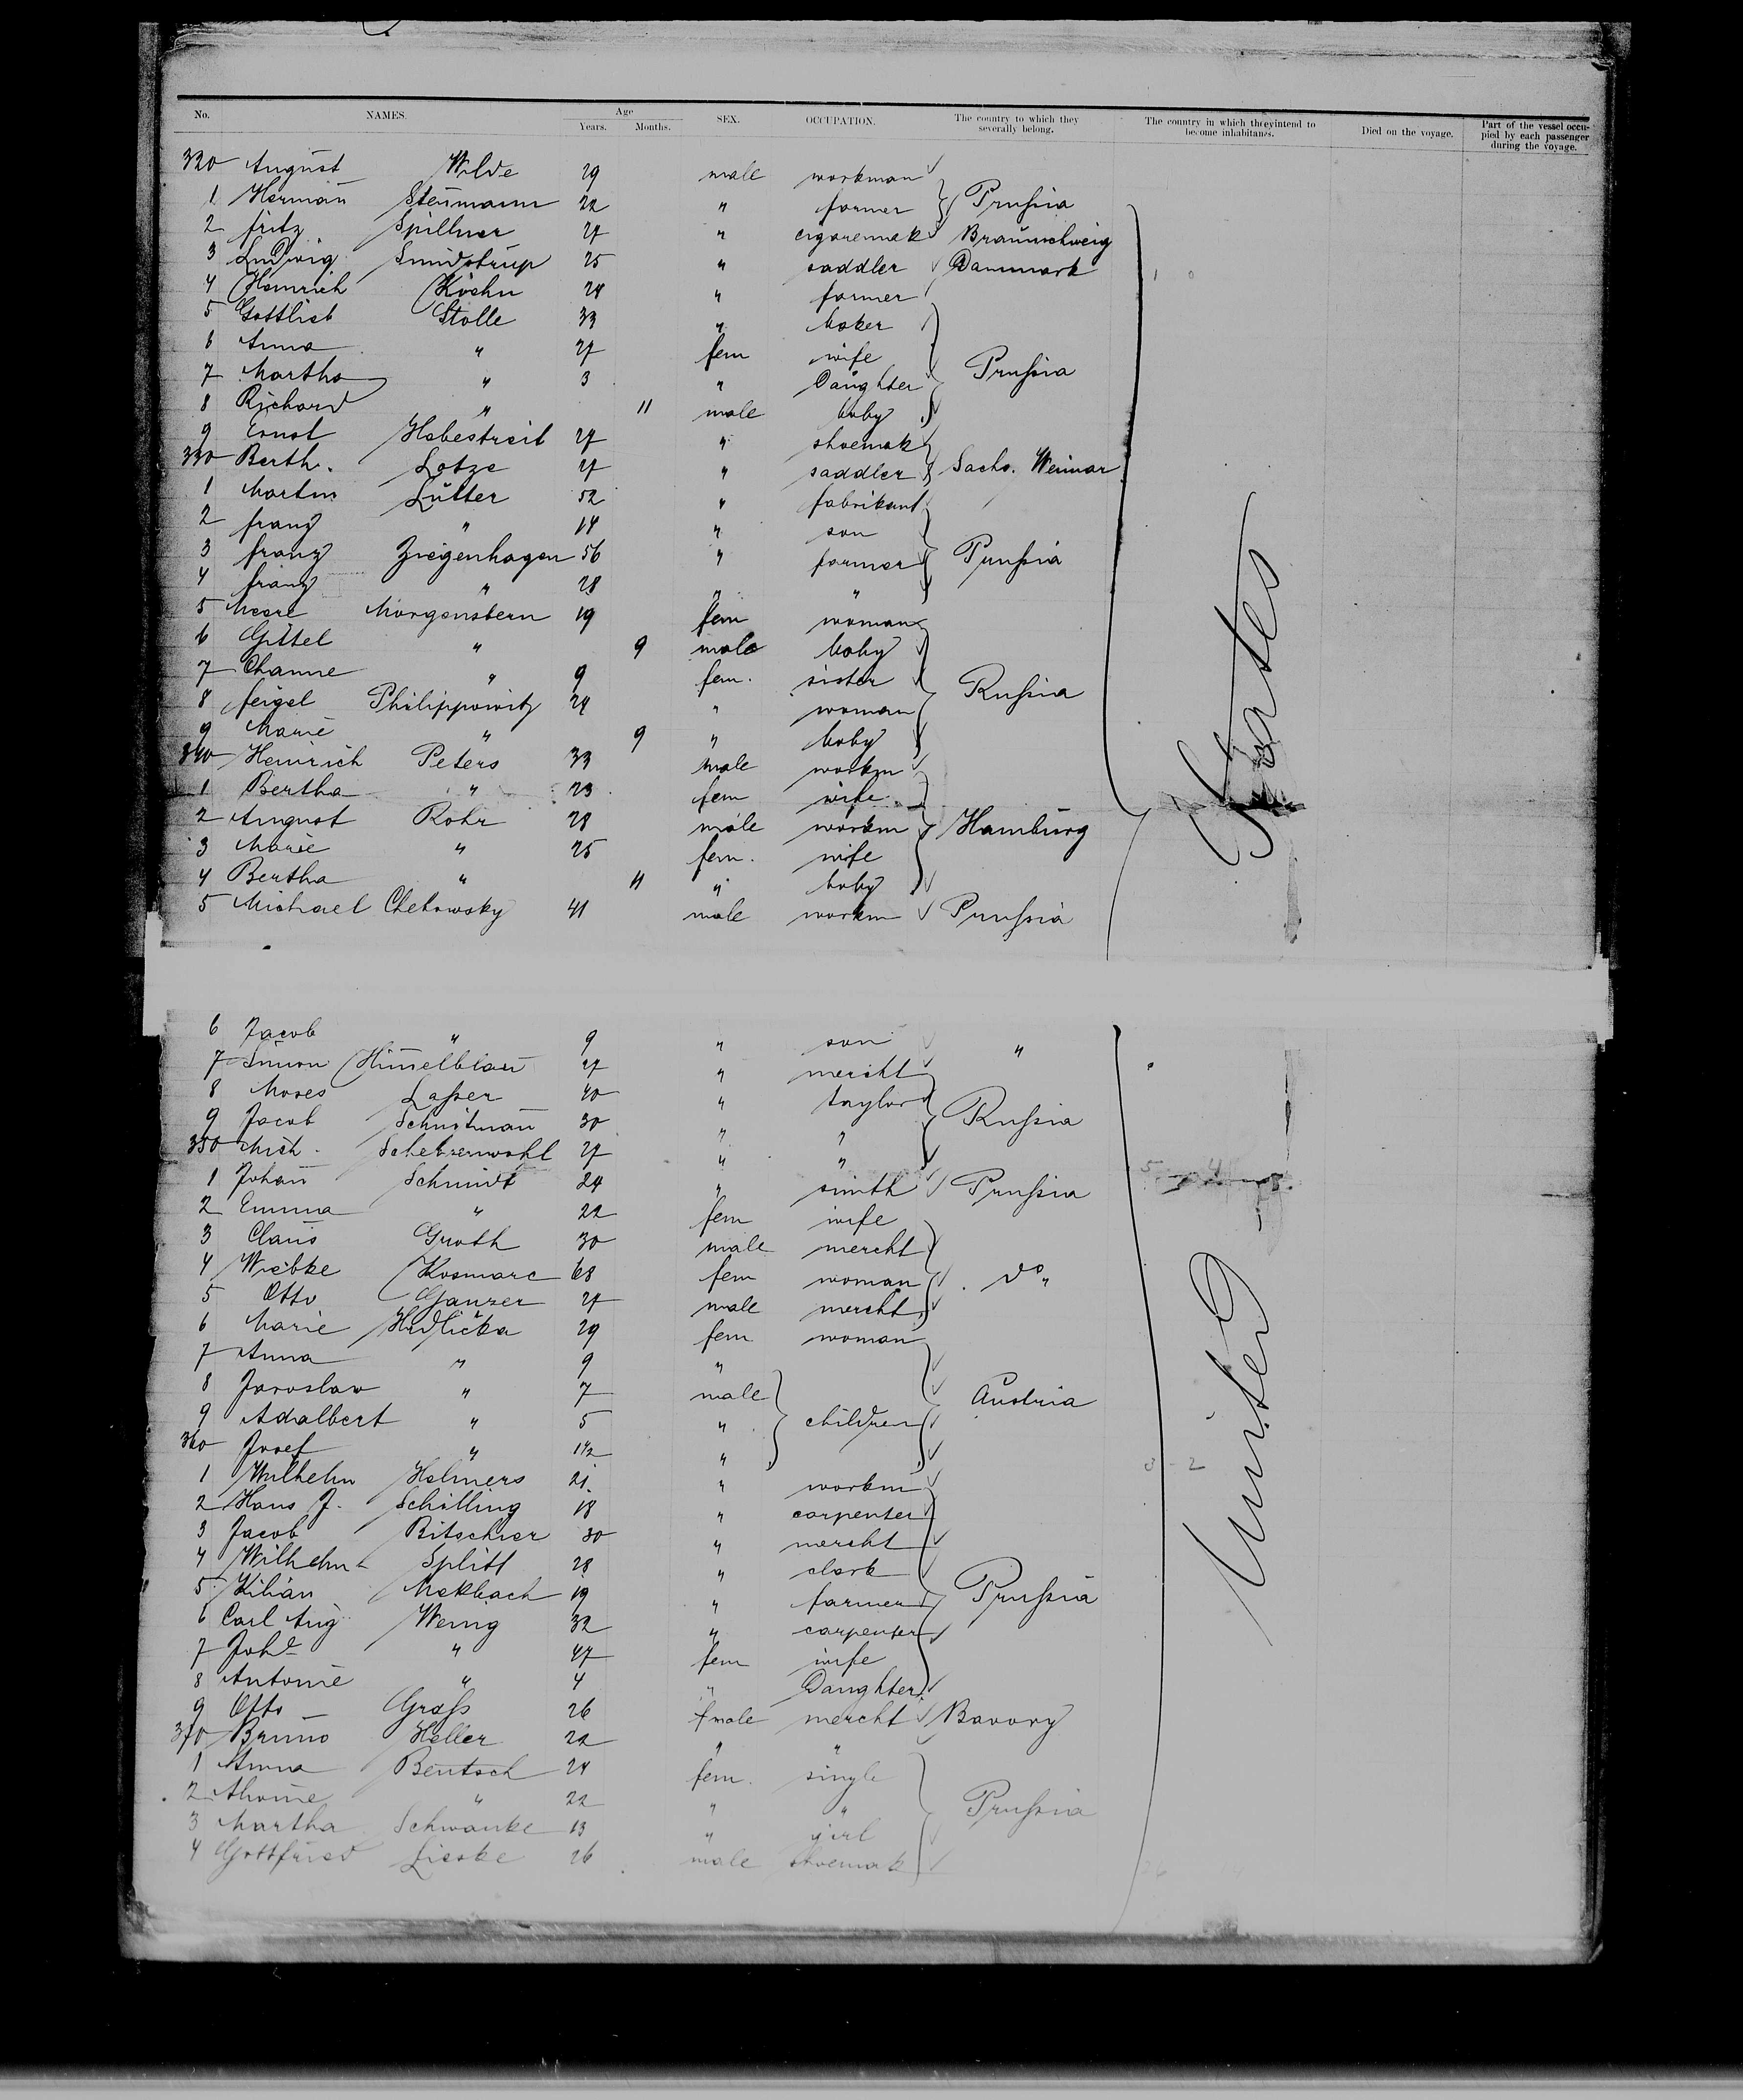 No. NAMES. Age Years. Months. SEX. OCCUPATION. The country to which they severally belong. The country in which they intend to become inhabitans. Died on the voyage. Part of the vessel occupied by each passenger during the voyage.
320 August Wilde 29 male workman
1 Herman̄ Steūmann 22 " farmer } Prussia
2 fritz Spillner 27 " cigaremak Braunschweig
3 Ludwig Smidstrup 25 " saddler Dannmark
4 Heinrich Köehn 24 " farmer
5 Gottlieb Stolle 33 " baker
6 Anna " 27 fem wife
7 Martha " 3 " Daughter } Prussia
8 Richard " 11 male baby
9 Ernst Habestreit 27 " shoemak
330 Berth. Lotze 27 " saddler } Sachs. Weimar
1 Martin Lutter 52 " fabrikant
2 franz " 14 " son
3 franz Ziegenhagen 56 " farmer } Prussia
4 franz " 28 " "
5 Morgenstern 19 fem woman
6 Gittel " 9 male baby
7 Channe " 9 fem. sister
8 feigel Philippowitz 24 " woman } Russia
9 Marie " 9 " baby
340 Heinrich Peters 33 male workm
1 Bertha " 23 fem wife
2 August Rohr 28 male workm } Hamburg
3 Marie " 25 fem. wife
4 Bertha " 11 " baby
5 Michael Chekowsky 41 male workm Prussia
States
6 Jacob " 9 " son "
7 Simon Himelblau 27 " mercht
8 Moses Lasser 40 " taylor
9 Jacob Schnitman̄ 30 " " } Russia
350 Mich. 27 " "
1 Johan̄ Schmidt 24 " smith Prussia
2 Emma " 22 fem wife
3 Claus Groth 30 male mercht
4 Wiebke Kosmare 68 fem woman } do "
5 Otto Ganzer 27 male mercht
6 Marie Hrdlicka 29 fem woman
7 Anna " 9 "
8 Jaroslav " 7 male Austria
9 Adalbert " 5 " } children
360 Josef " 1½ "
1 Wilhelm Helmers 21 " workm
2 Hans J. Schilling 18 " carpenter
3 Jacob Ritschier 30 " mercht
4 Wilhelm Splitt 28 " clark
5 Kilian Makbach 19 " farmer } Prussia
6 Carl Aug Wenig 32 " carpenter
7 Johe " 47 fem wife
8 Antonie " 4 " Daughter
9 Otto Grass 26 male mercht Bavory
370 Bruno Heller 22 " "
1 Anna Bentsch 24 fem. single
2 " 22 " " } Prussia
3 Martha Schwanke 13 " girl
4 Gottfried Lieske 26 male shoemak
United